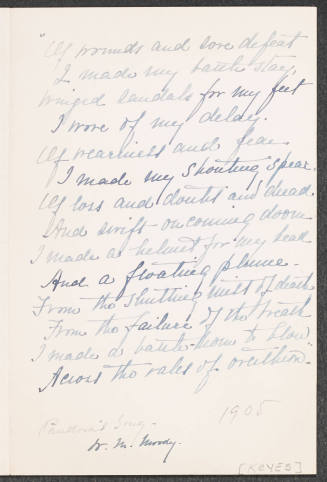 "Of wounds and sore defeat
I made my battle stay,
Winged sandals for my feet
I wove of my delay.
Of weariness and fear
I made my shouting spear.
Of loss and doubt and dread
And swift oncoming doom
I made a helmet for my head
And a floating plume.
From the shutting mist of death
From the failure of the breath
I made a battle-horn to blow
Across the vales of overthrow."
1905
Pandora's Song -
W. M. Moody.
[KEYES]